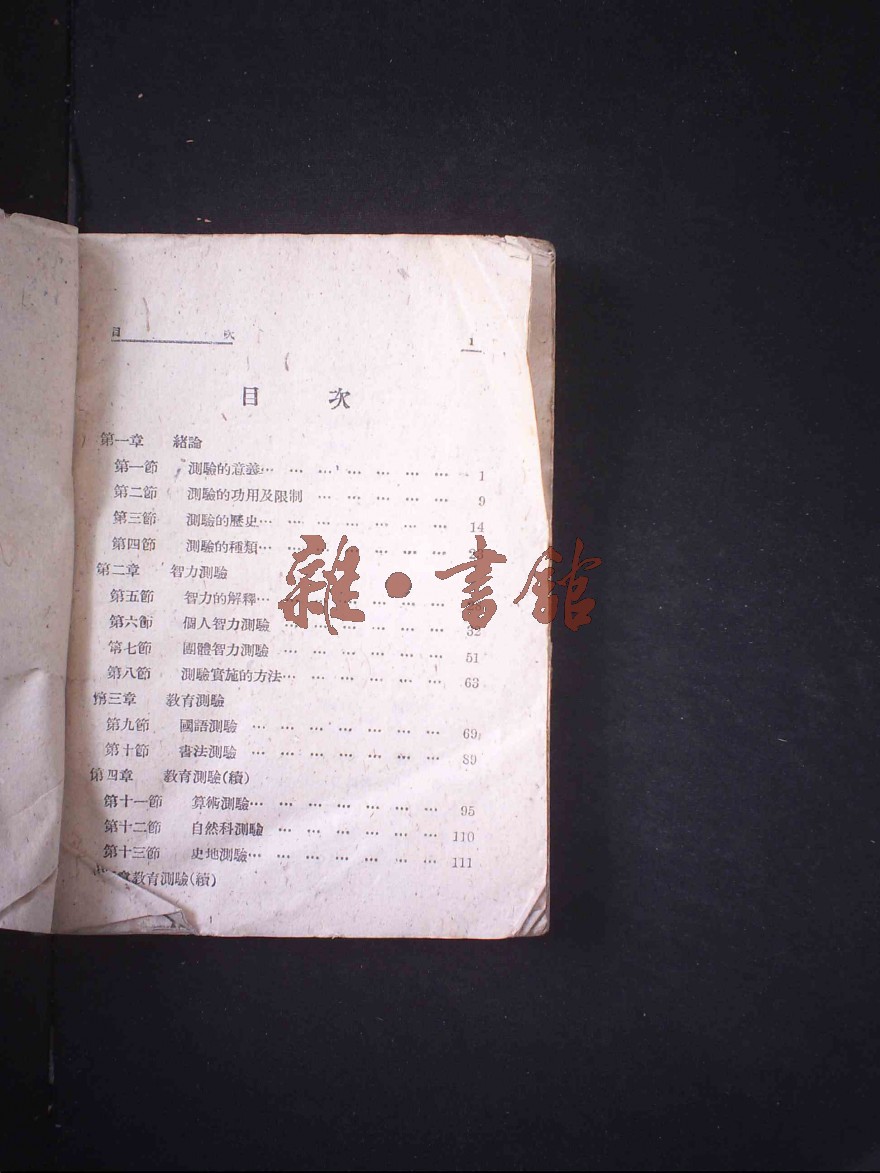 目次 1
目 次
第一章 緒論
第一節 測驗的意義… … … … … … … 1
第二節 測驗的功用及限制 … … … … … 9
第三節 測驗的歷史… … … … … … … 14
第四節 測驗的種類… … … … … … …
第二章 智力測驗
雜·書館
第五節 智力的解釋… … … … … … …
第六節 個人智力測驗 … … … … … … 32
第七節 團體智力測驗 … … … … … … 51
第八節 測驗實施的方法… … … … … … 63
第三章 教育測驗
第九節 國語測驗 … … … … … … … 69
第十節 書法測驗 … … … … … … … 89
第四章 教育測驗(續)
第十一節 算術測驗… … … … … … … 95
第十二節 自然科測驗 … … … … … … 110
第十三節 史地測驗… … … … … … … 111
教育測驗(續)
1